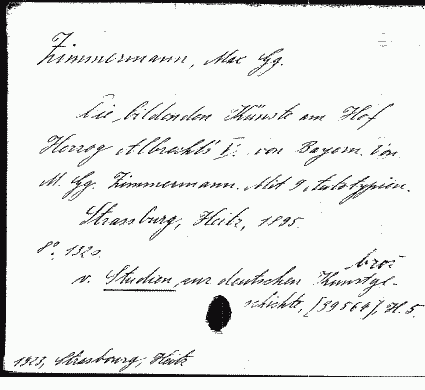 Zimmermann, Max Gg.
Die bildenden Künste am Hof
Herzog Albrecht's V. von Bayern. Von
M. Gg. Zimmermann. Mit 9 Autotypien.
Strassburg, Heitz, 1895.
8°, 132 S. broš
v. Studien zur deutschen Kunstge-
schichte, [39564], H. 5.
1923, Strasbourg, Heitz